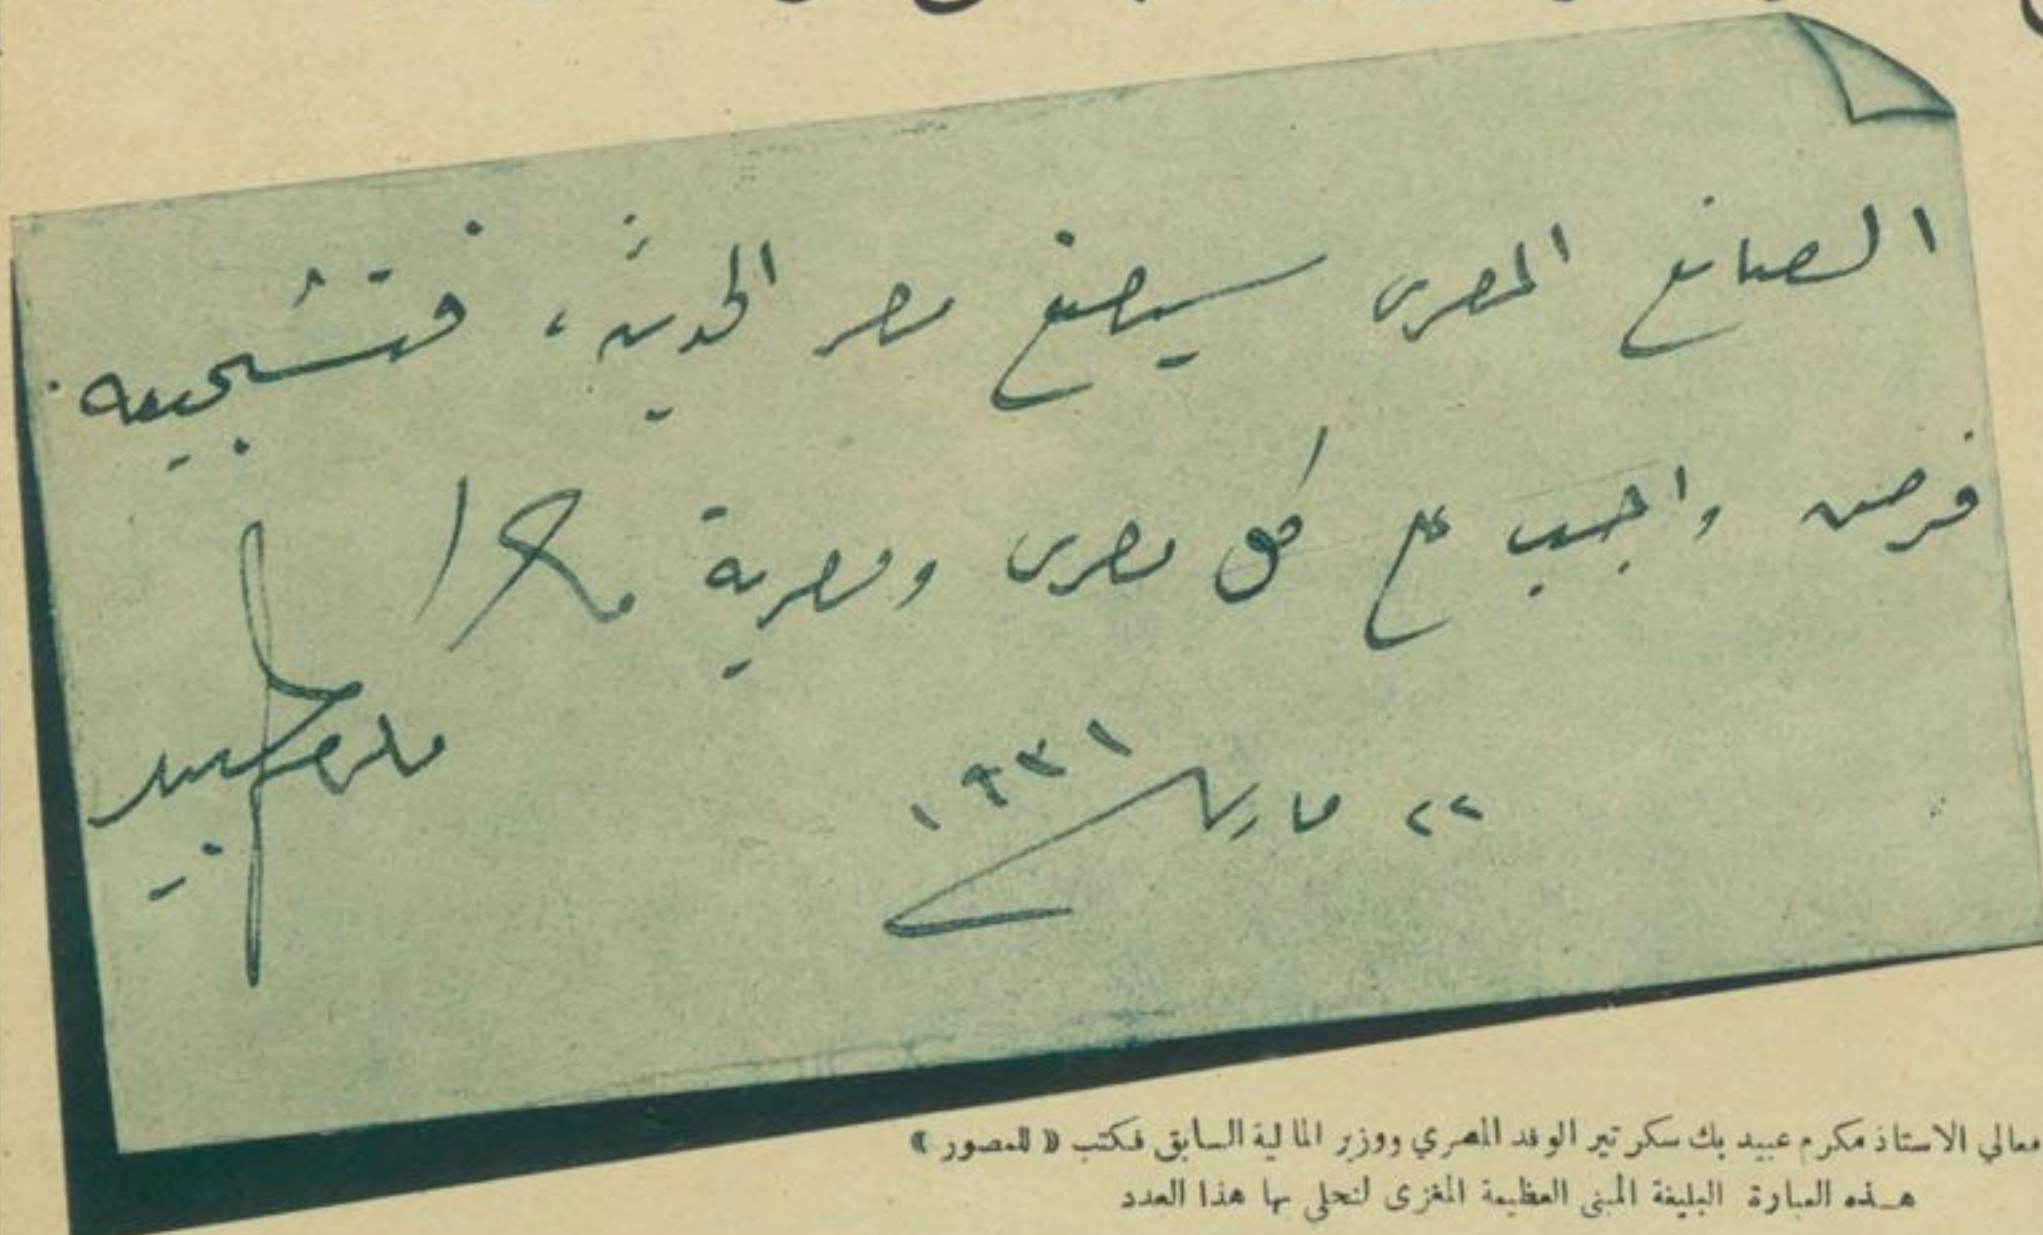 الصانع المصرى سيصنع مصر الحديثة ، فتشجيعه
فرض واجب على كل مصرى ومصرية
مكرم عبيد
٢٢ مارس ١٩٣١
معالي الاستاذ مكرم عبيد بك سكرتير الوفد المصري ووزير المالية السابق فكتب « للمصور »
هذه العبارة البليغة المبنى العظيمة المغزى لنحلي بها هذا العدد